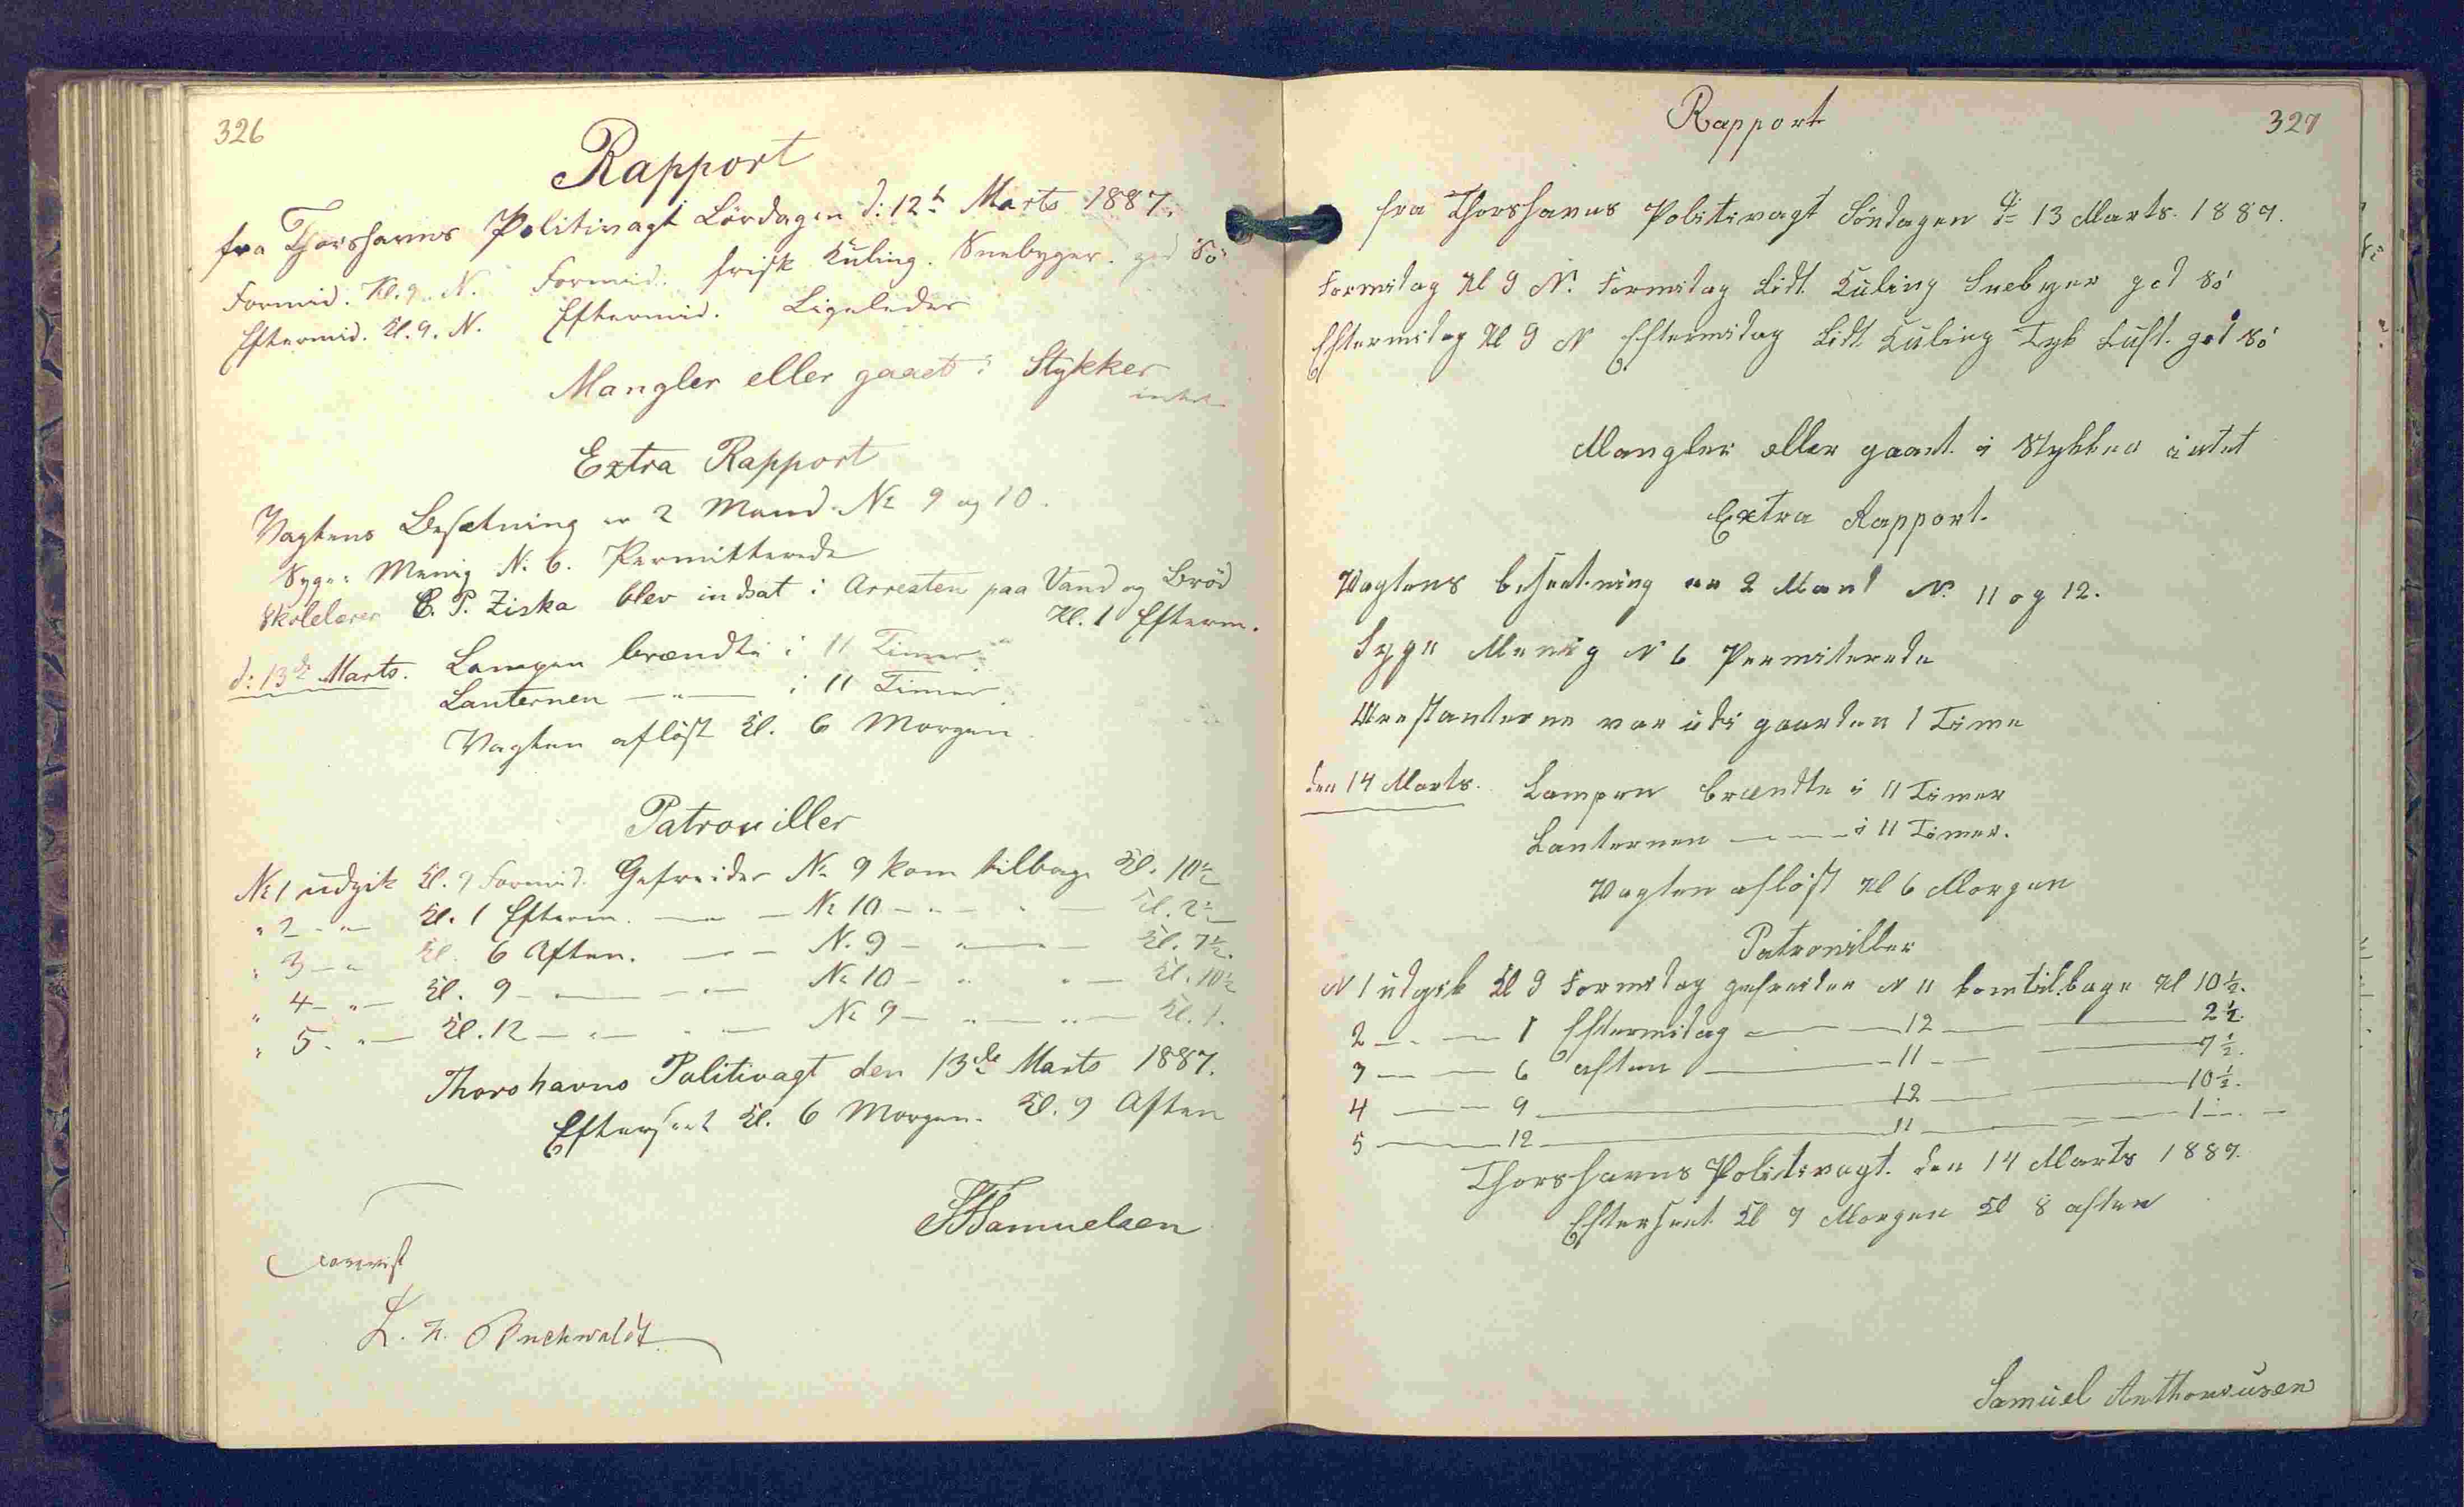 326
Rapport
fra Thorshavns Politivagt Lördagen d: 12te Marts 1887.
Formid. Kl. 9. N. Formid. frisk Kuling. Snebyger. god Sö
Eftermid. Kl. 9. N. Eftermid. Ligeledes
Mangler eller gaaet i Stykker
intet
Extra Rapport
Vagtens Besætning er 2 Mand No 9 og 10.
Syge: Menig N. 6. Permitterede
Skolelærer C. P. Ziska blev indsat i Arresten paa Vand og Bröd
Kl. 1 Efterm.
d: 13de Marts. Lampen brændte i 11 Timer
Lanternen — " — i 11 Timer
Vagten aflöst Kl. 6 Morgen.
Patrouiller
No 1 udgik Kl. 9 Formid. Gefreider No 9 kom tilbage Kl. 10½
" 2 - " - Kl. 1 Efterm. — " — No 10 - " - " - Kl. 2½
" 3 - " Kl. 6 Aften. — " - N. 9 - " - " - Kl. 7½.
" 4 - " - Kl. 9 - " — " — No 10 - " " - Kl. 10½
" 5. " - Kl. 12 - " - " - No 9 - " - " - Kl. 1.
Thorshavns Politivagt den 13de Marts 1887.
Efterseet Kl. 6 Morgen. Kl. 9 Aften
Samuelsen
L. H. Buchwaldt
Rapport
327
fra Thorshavns Politivagt Söndagen d. 13 Marts. 1887.
Formidag Kl 9 N. Formidag Lidt Kuling Snebyer god Sö
Eftermidag Kl 9 N Eftermidag Lidt Kuling Tyk Luft. god Sö
Mangler eller gaaet i Stykker intet
Extra Rapport.
Vagtens besætning er 2 Mand N. 11 og 12.
Syge Menig N 6 Permiterede
Arrestanterne var udi gaarden 1 Time
den 14 Marts. Lampen brændte i 11 Timer
Lanternen — — — i 11 Timer.
Vagten aflöst Kl 6 Morgen
Patrouiller
N 1 udgik Kl 9 Formidag gefreider N 11 kom tilbage Kl 10½.
2 — — 1 Eftermidag — — 12 — — 2½.
3 — — 6 aften — — 11 — — 7½.
4 — — 9 — — 12 — — 10½.
5 — — 12 — — 11 — — 1 — —
Thorshavns Politivagt. den 14 Marts 1887.
Efterseet Kl 7 Morgen Kl 8 aften
Samuel Anthoniusen